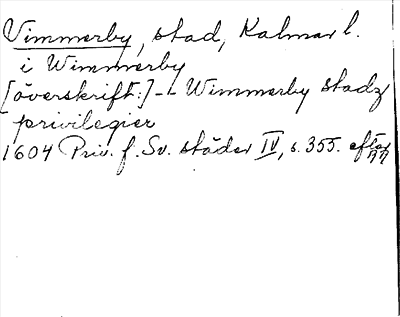 Vimmerby, stad, Kalmar l.
i Wimmerby
[överskrift:] - - Wimmerby stadz
privilegier
1604 Priv. f. Sv. städer IV, s. 355.